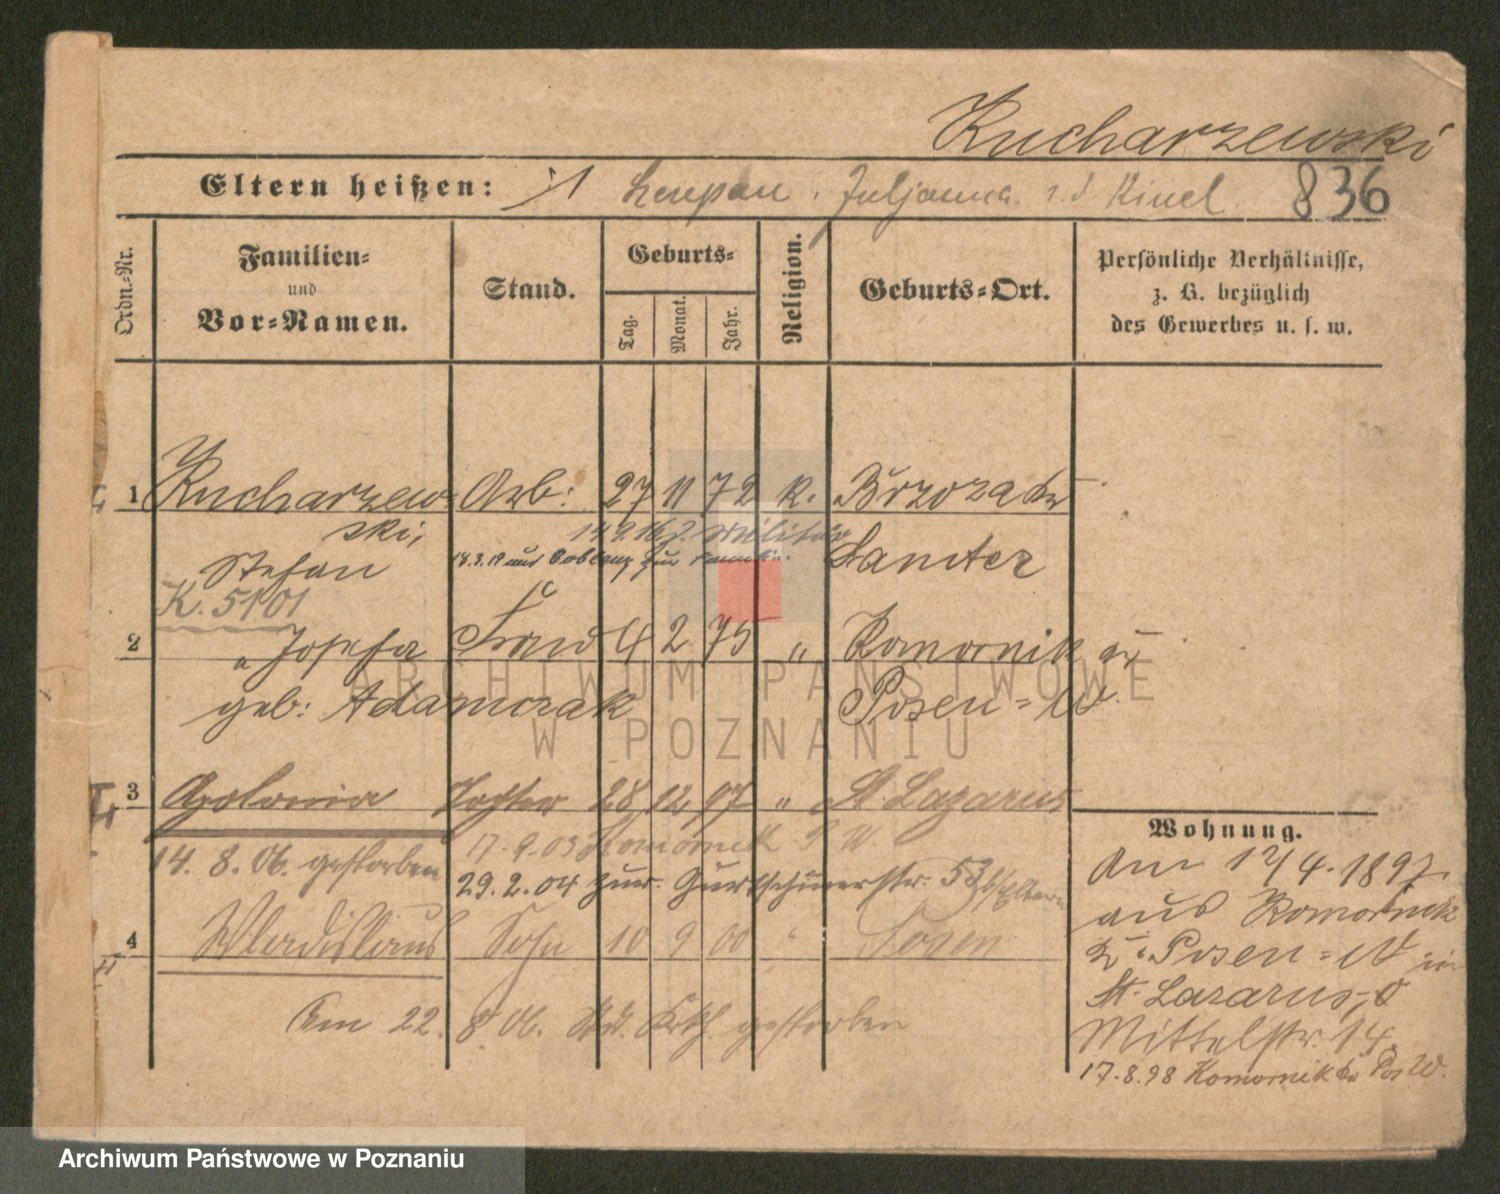 Kucharzewski
Eltern heißen: 1 Juljanna Kinel 836
Ordn.-Nr.
Familien-
und
Vor-Namen.
Stand.
Geburts-
Tag.
Monat.
Jahr.
Religion.
Geburts-Ort.
Persönliche Verhältnisse,
z. B. bezüglich
des Gewerbes u. s. w.
1 Kucharzew- Arb: 27 11 72 k. Brzoza Kr
ski, Militär
Stefan 18.3.19 aus Coblenz zur Familie. Samter
K. 5101
2 " Josefa Frau 4 2 75 " Komornik
geb: Adamczak Posen=W.
3 Apolonia Tochter 28 12 97 " St Lazarus
17.9.03 Komornik P W.
14. 8. 06. gestorben 29.2.04 zur. Gurtschinerstr. 53 b/Eltern
4 Wladislaus Sohn 10 9 00 " Posen
Am 22. 8 06. gestorben
Wohnung.
Am 12/4.1897.
aus Komornik
Posen=W in
St. Lazarus,
Mittelstr. 14.
17.8.98 Komornik Kr Pos W.
ARCHIWUM PAŃSTWOWE
W POZNANIU
Archiwum Państwowe w Poznaniu